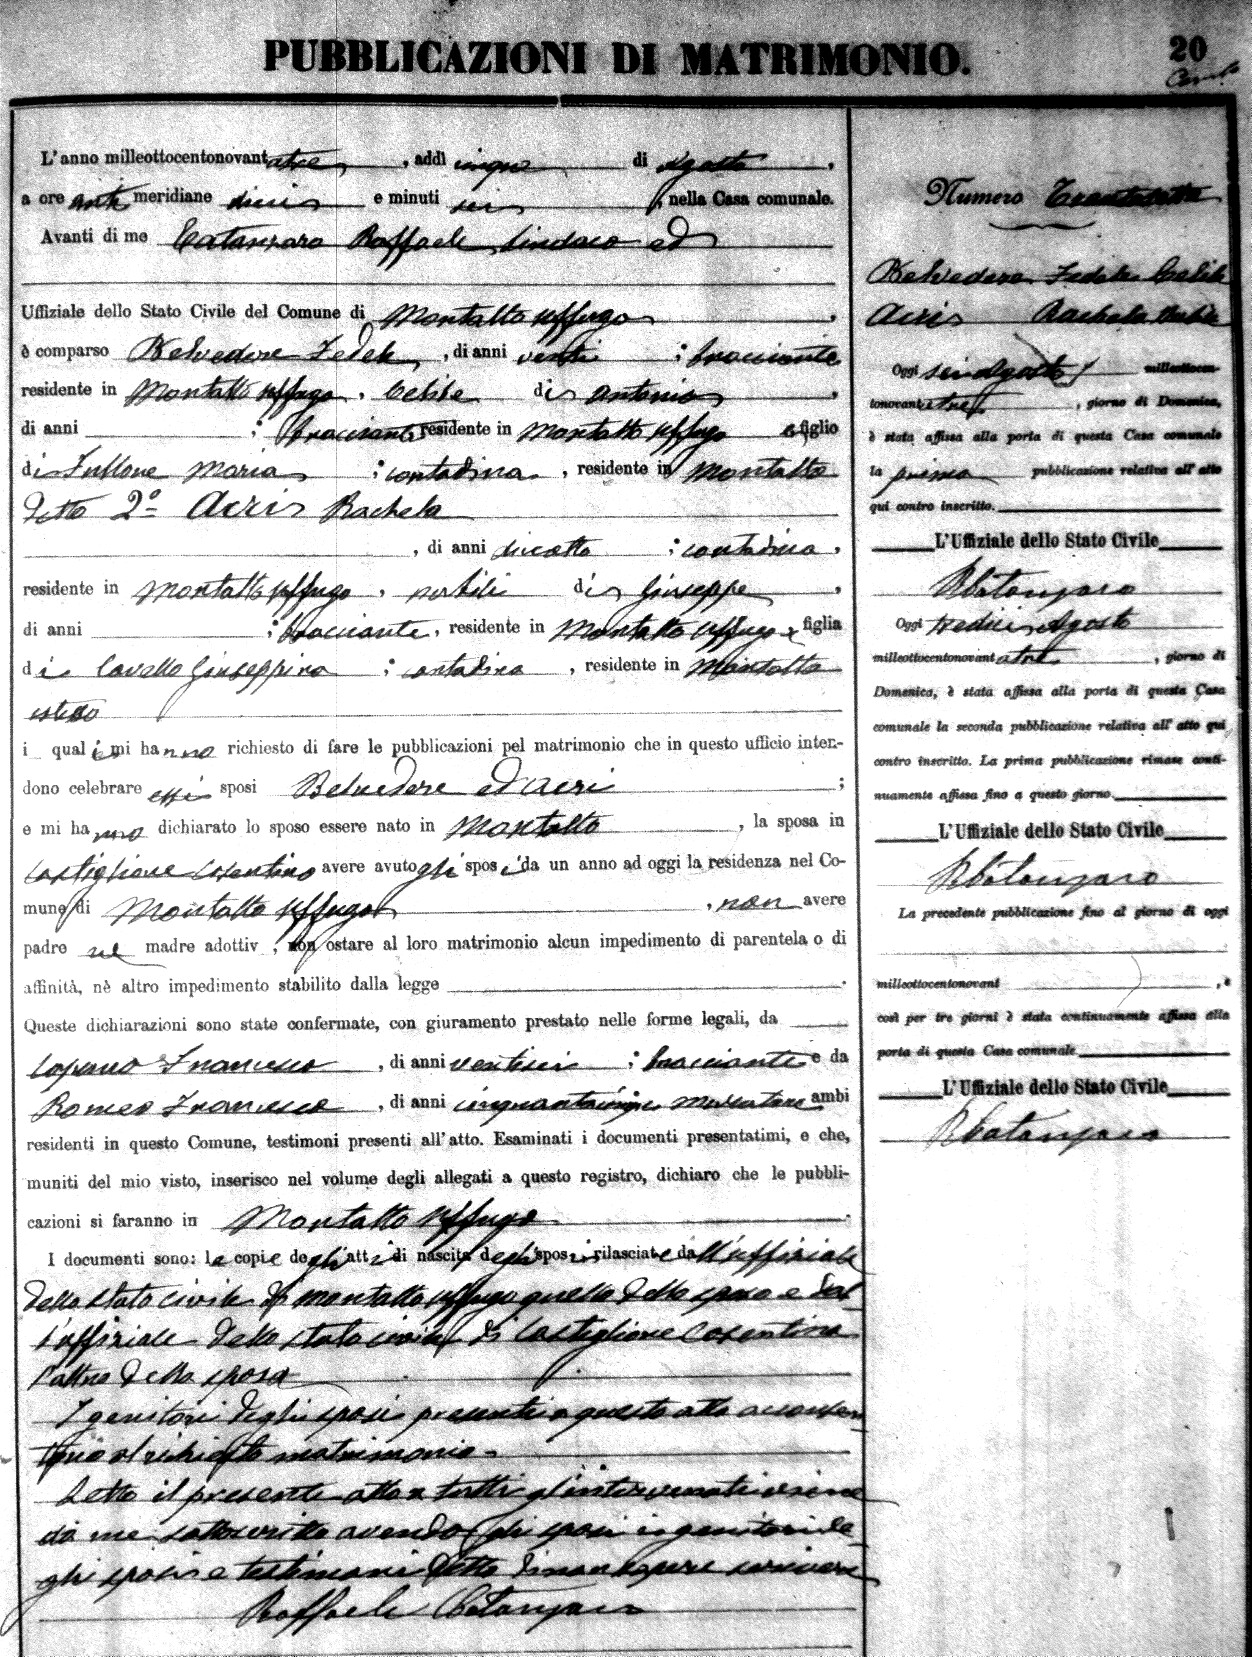 PUBBLICAZIONI DI MATRIMONIO.
20
L'anno milleottocentonovantatre, addì cinque di Agosto,
a ore anti meridiane dieci e minuti sei, nella Casa comunale.
Avanti di me Catanzaro Raffaele Sindaco ed
Uffiziale dello Stato Civile del Comune di Montalto Uffugo,
è comparso Belvedere Fedele, di anni venti; bracciante
residente in Montalto Uffugo, celibe di Antonio,
di anni ; bracciante residente in Montalto Uffugo e figlio
di Maria; contadina, residente in Montalto
detto 2º Acri Rachela
, di anni diciotto; contadina,
residente in Montalto Uffugo, nubile di Giuseppe,
di anni ; bracciante, residente in Montalto Uffugo e figlia
di Cavallo Giuseppina; contadina, residente in Montalto
istesso
i quali mi hanno richiesto di fare le pubblicazioni pel matrimonio che in questo ufficio inten-
dono celebrare essi sposi Belvedere ed Acri;
e mi hanno dichiarato lo sposo essere nato in Montalto, la sposa in
Castiglione Cosentino avere avuto gli sposi da un anno ad oggi la residenza nel Co-
mune di Montalto Uffugo, non avere
padre nè madre adottiv, non ostare al loro matrimonio alcun impedimento di parentela o di
affinità, nè altro impedimento stabilito dalla legge.
Queste dichiarazioni sono state confermate, con giuramento prestato nelle forme legali, da
Francesco, di anni ventisei; bracciante e da
Romeo Francesco, di anni cinquantacinque ambi
residenti in questo Comune, testimoni presenti all'atto. Esaminati i documenti presentatimi, e che,
muniti del mio visto, inserisco nel volume degli allegati a questo registro, dichiaro che le pubbli-
cazioni si faranno in Montalto Uffugo.
I documenti sono: le copie degli atti di nascita degli sposi rilasciate dall'uffiziale
dello stato civile di Montalto Uffugo quella dello sposo e dal
l'uffiziale dello stato civile di Castiglione Cosentino
l'altra della sposa
I genitori degli sposi presenti a questo atto acconsen
tono al richiesto matrimonio.
Letto il presente atto a tutti gl'intervenuti viene
da me sottoscritto avendo gli sposi i genitori de
gli sposi e testimoni detto di non sapere scrivere
Raffaele Catanzaro
Numero Trentasette
Belvedere Fedele Celibe
Acri Rachela Nubile
Oggi sei Agosto milleottocen-
tonovantatre, giorno di Domenica,
è stata affissa alla porta di questa Casa comunale
la prima pubblicazione relativa all'atto
qui contro inscritto.
L'Uffiziale dello Stato Civile
R Catanzaro
Oggi tredici Agosto
milleottocentonovantatre, giorno di
Domenica, è stata affissa alla porta di questa Casa
comunale la seconda pubblicazione relativa all'atto qui
contro inscritto. La prima pubblicazione rimase conti-
nuamente affissa fino a questo giorno.
L'Uffiziale dello Stato Civile
R Catanzaro
La precedente pubblicazione fino al giorno di oggi
milleottocentonovant, e
così per tre giorni è stata continuamente affissa alla
porta di questa Casa comunale
L'Uffiziale dello Stato Civile
R Catanzaro